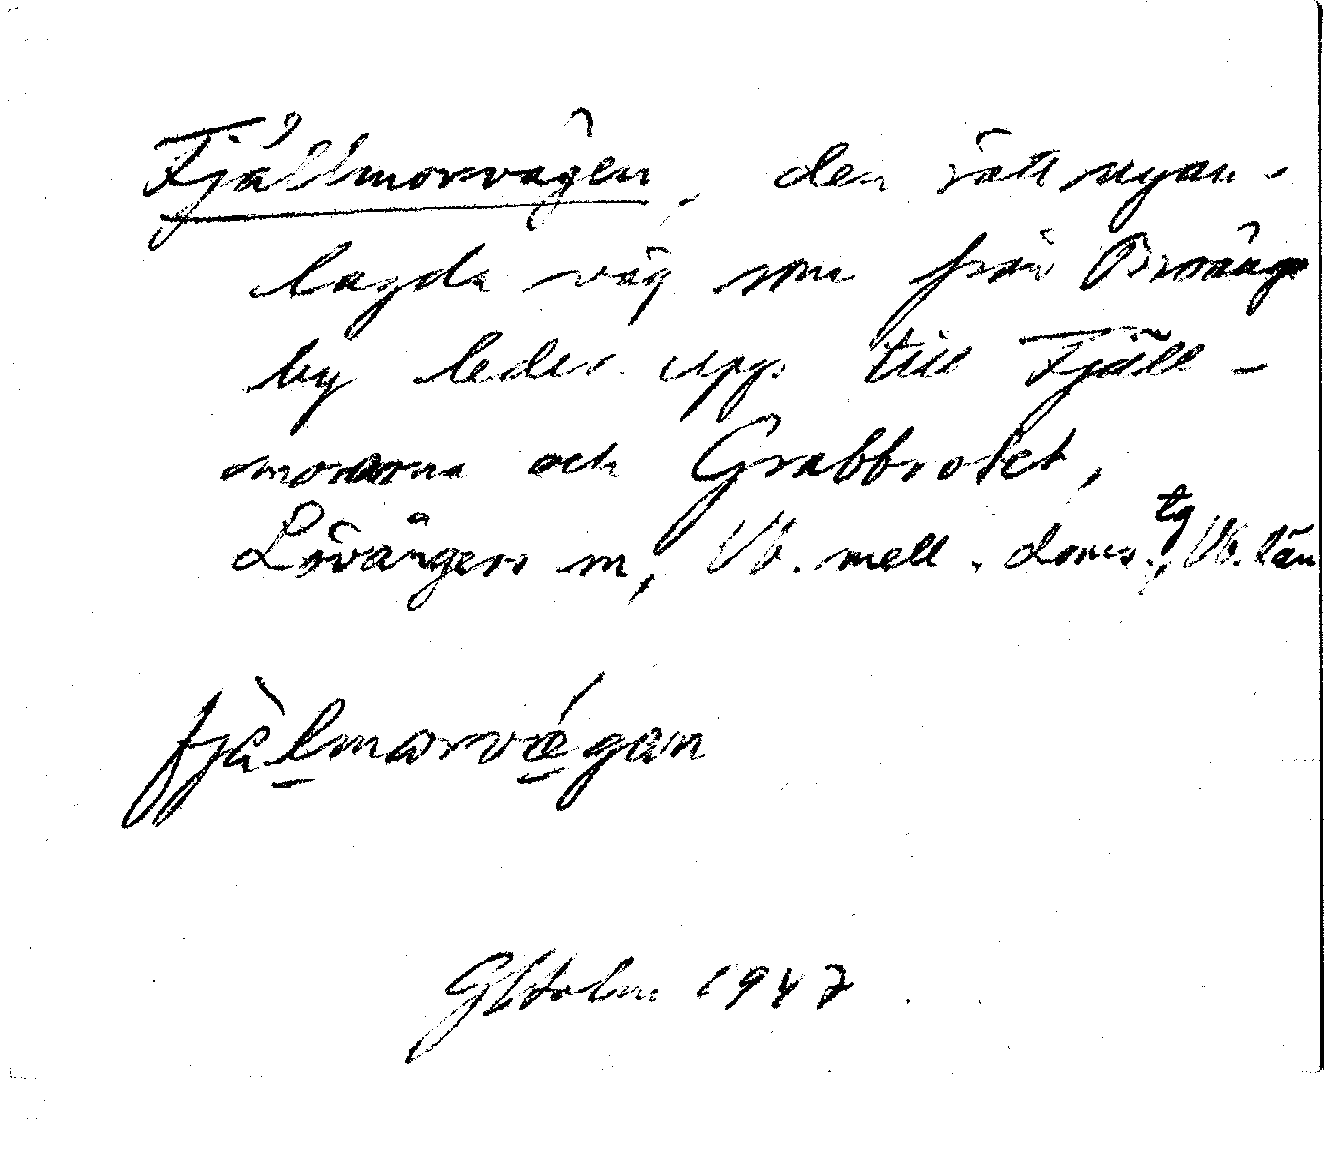 Fjällmorvägen, den rätt nyan-
lagda väg som från Broänge
by leder upp till Fjäll-
morarna och Grabbrotet,
Lövångers sn, Vb. mell. doms. tg, Vb. län
fjälmorvégan
GHolm 1947